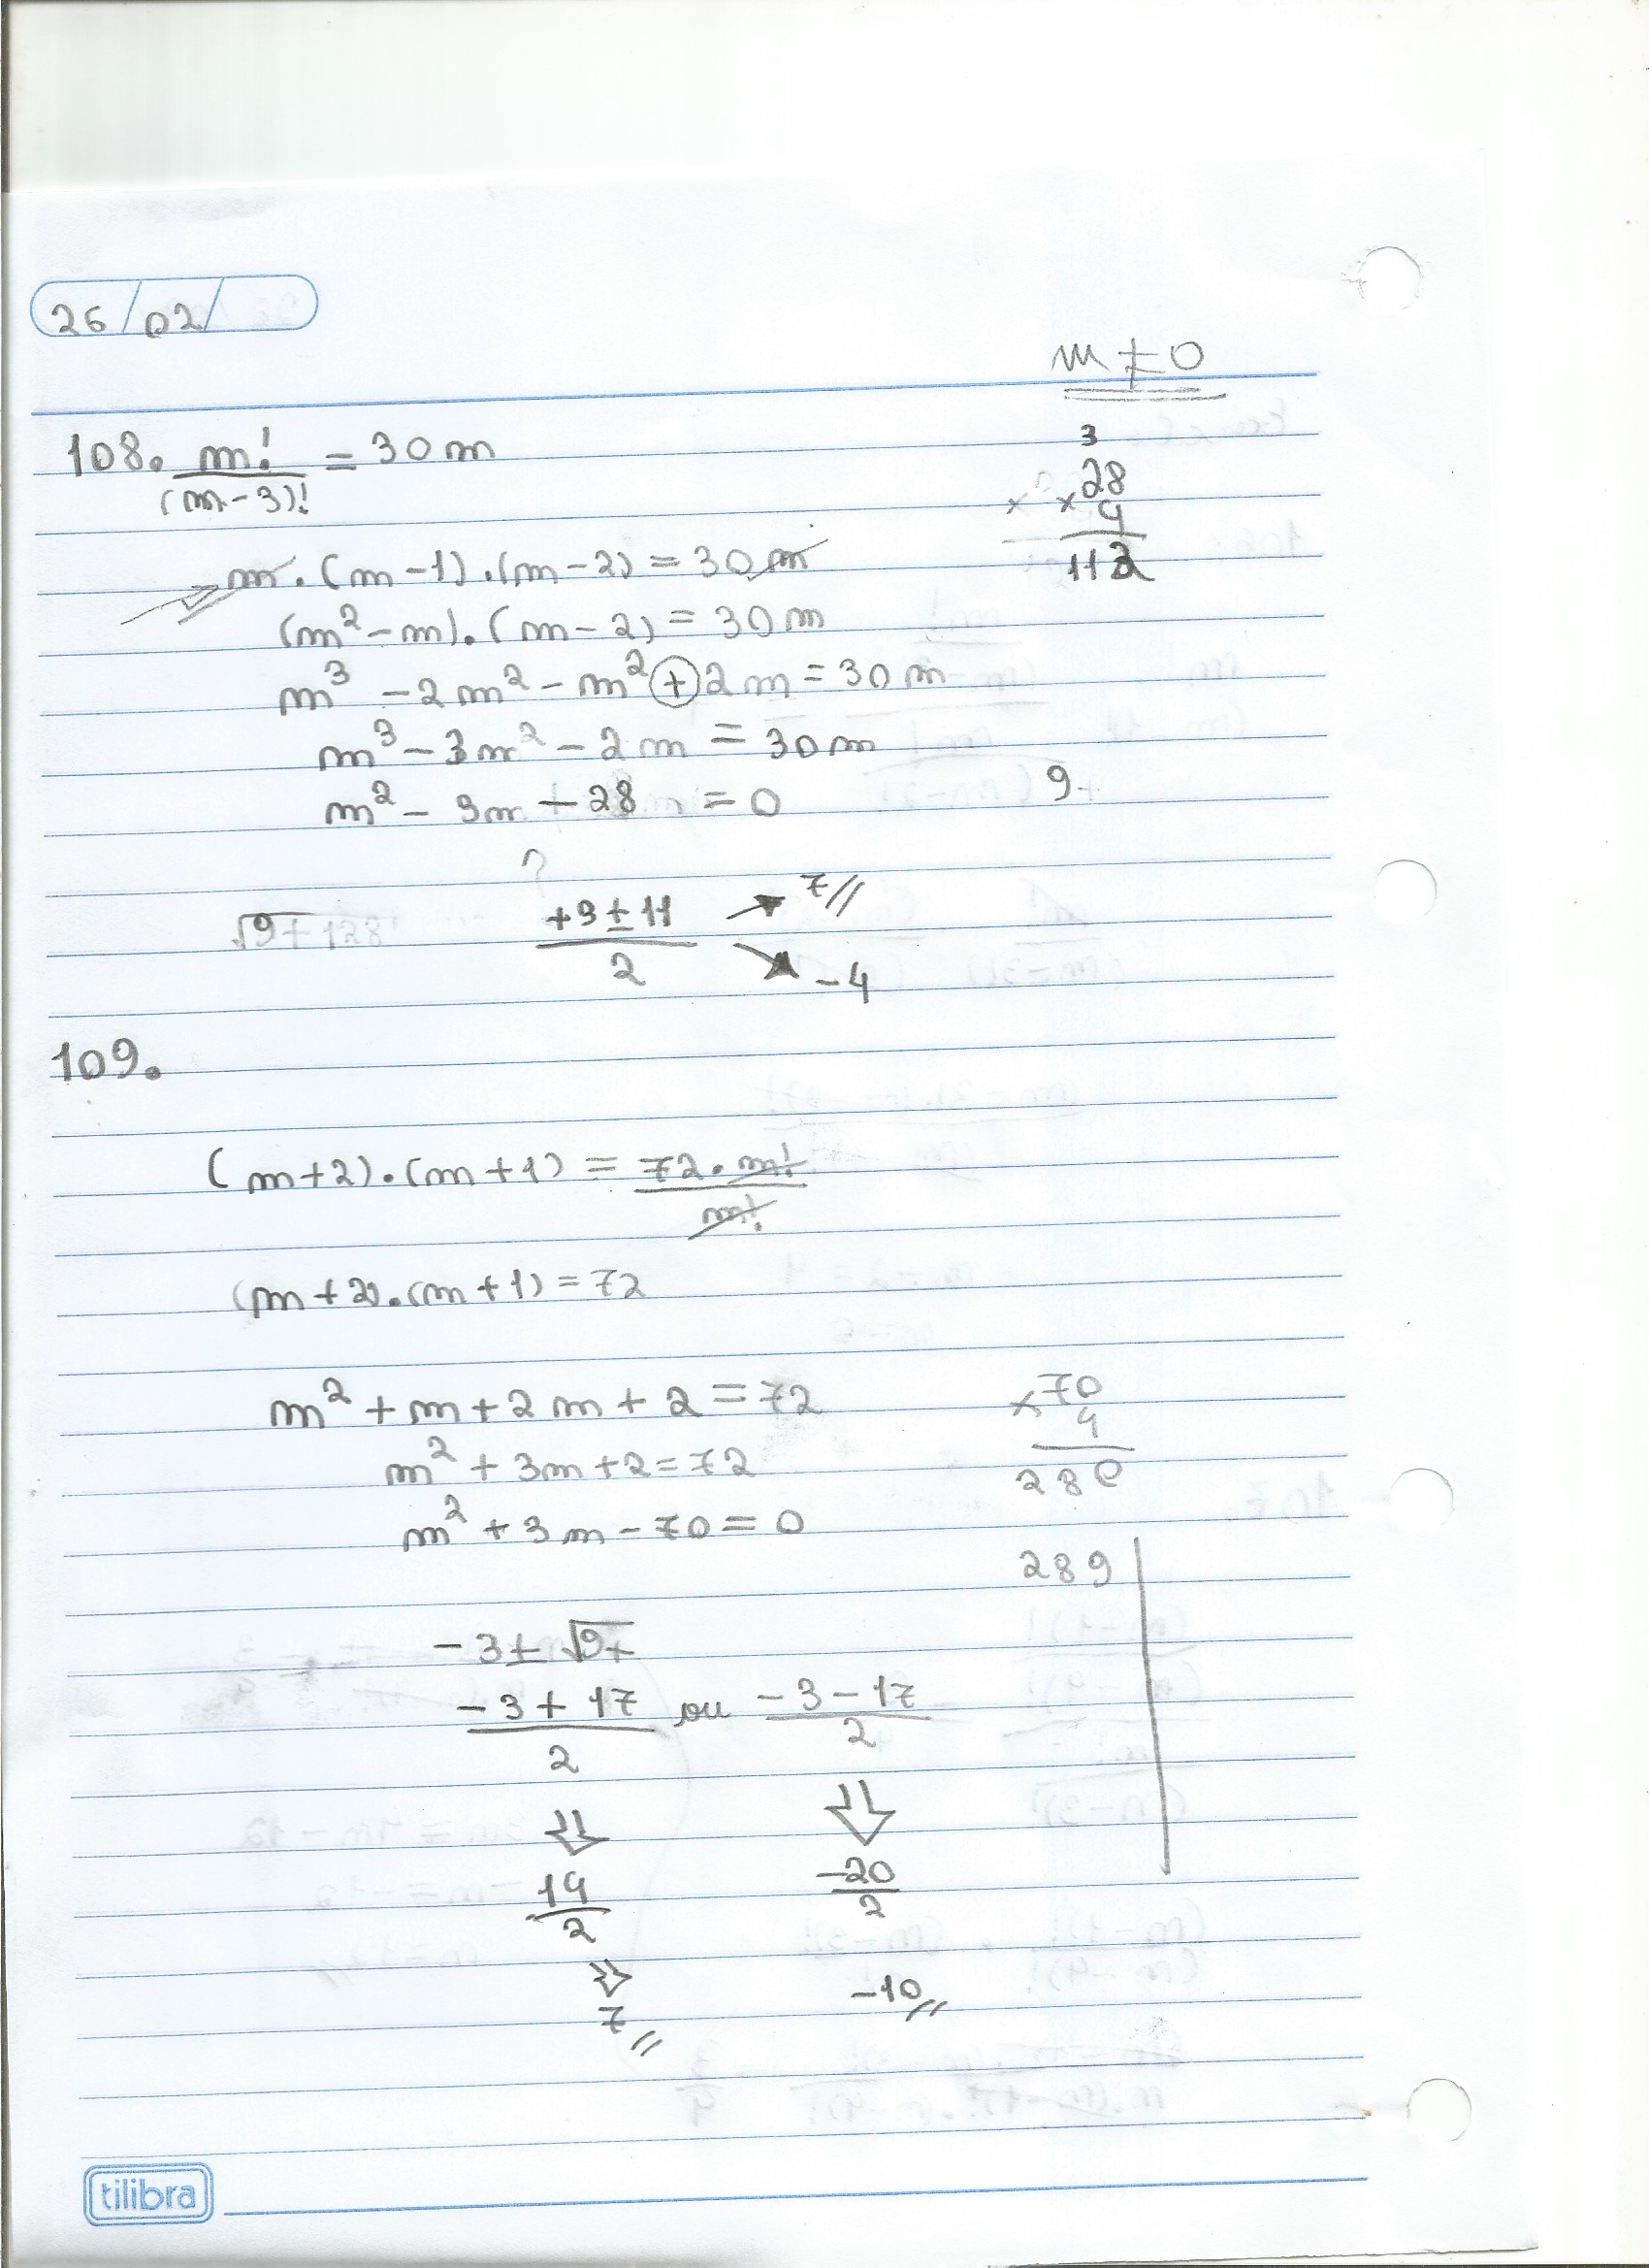 26/02/
m ≠ 0
108. m!/(m-3)! = 30m
3
28
× 4
112
m.(m-1).(m-2) = 30m
(m²-m).(m-2) = 30m
m³ -2m² - m² + 2m = 30m
m³ - 3m² - 2m = 30m
m² - 3m - 28 = 0
9+
?
√9+128
+3±11/2
7//
-4
109.
(m+2).(m+1) = 72.m!/m!
(m+2).(m+1) = 72
m² + m + 2m + 2 = 72
×70
4
280
m² + 3m + 2 = 72
m² + 3m - 70 = 0
289
-3± √9+
-3+17/2 ou -3-17/2
14/2
-20/2
7//
-10//
tilibra